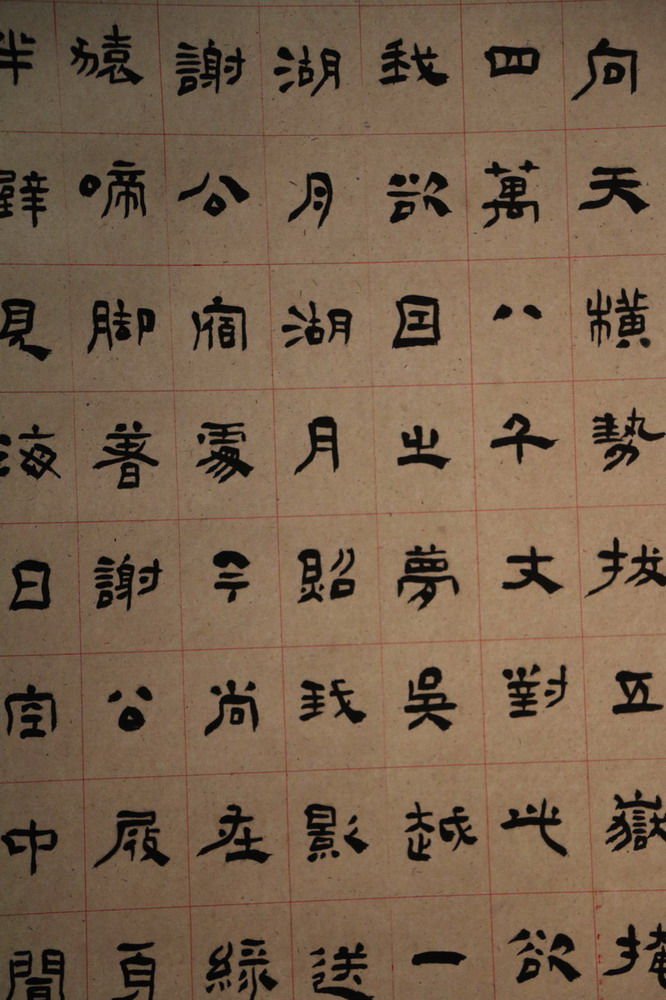 向天橫勢拔五嶽掩
四萬八千丈對此欲
我欲因之夢吳越一
湖月湖月照我影送
謝公宿處今尚在綠
猿啼脚著謝公屐身
半壁見海日空中聞